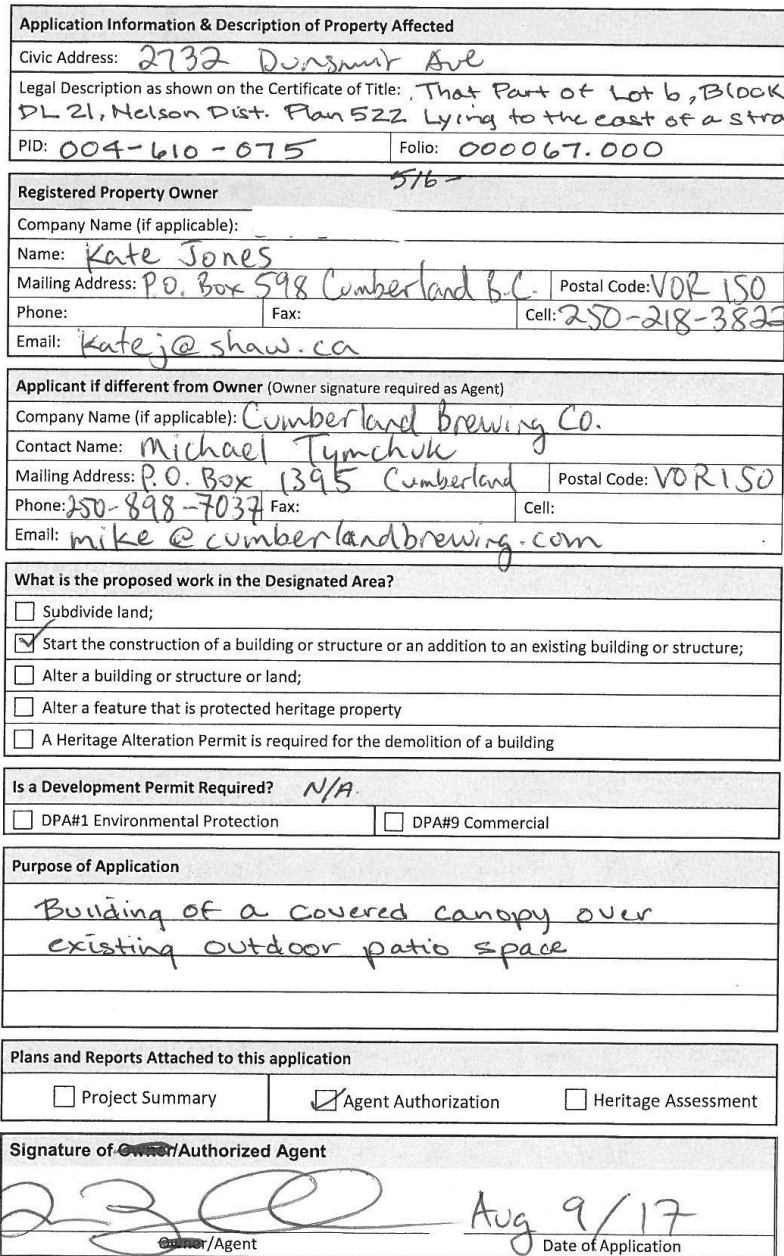 Application Information & Description of Property Affected
Civic Address: 2732 Dunsmuir Ave
Legal Description as shown on the Certificate of Title: That Part of Lot 6, Block
DL 21, Nelson Dist. Plan 522 Lying to the east of a stra
PID: 004-610-075 Folio: 000067.000
516-
Registered Property Owner
Company Name (if applicable):
Name: Kate Jones
Mailing Address: P.O. Box 598 Cumberland B.C. Postal Code: V0R 1S0
Phone: Fax: Cell: 250-218-3822
Email: katej@shaw.ca
Applicant if different from Owner (Owner signature required as Agent)
Company Name (if applicable): Cumberland Brewing Co.
Contact Name: Michael Tymchuk
Mailing Address: P.O. Box 1395 Cumberland Postal Code: V0R1S0
Phone: 250-898-7037 Fax: Cell:
Email: mike@cumberlandbrewing.com
What is the proposed work in the Designated Area?
Subdivide land;
Start the construction of a building or structure or an addition to an existing building or structure;
Alter a building or structure or land;
Alter a feature that is protected heritage property
A Heritage Alteration Permit is required for the demolition of a building
Is a Development Permit Required? N/A
DPA#1 Environmental Protection DPA#9 Commercial
Purpose of Application
Building of a covered canopy over
existing outdoor patio space
Plans and Reports Attached to this application
Project Summary Agent Authorization Heritage Assessment
Signature of Owner/Authorized Agent
Aug 9/17
Owner/Agent Date of Application